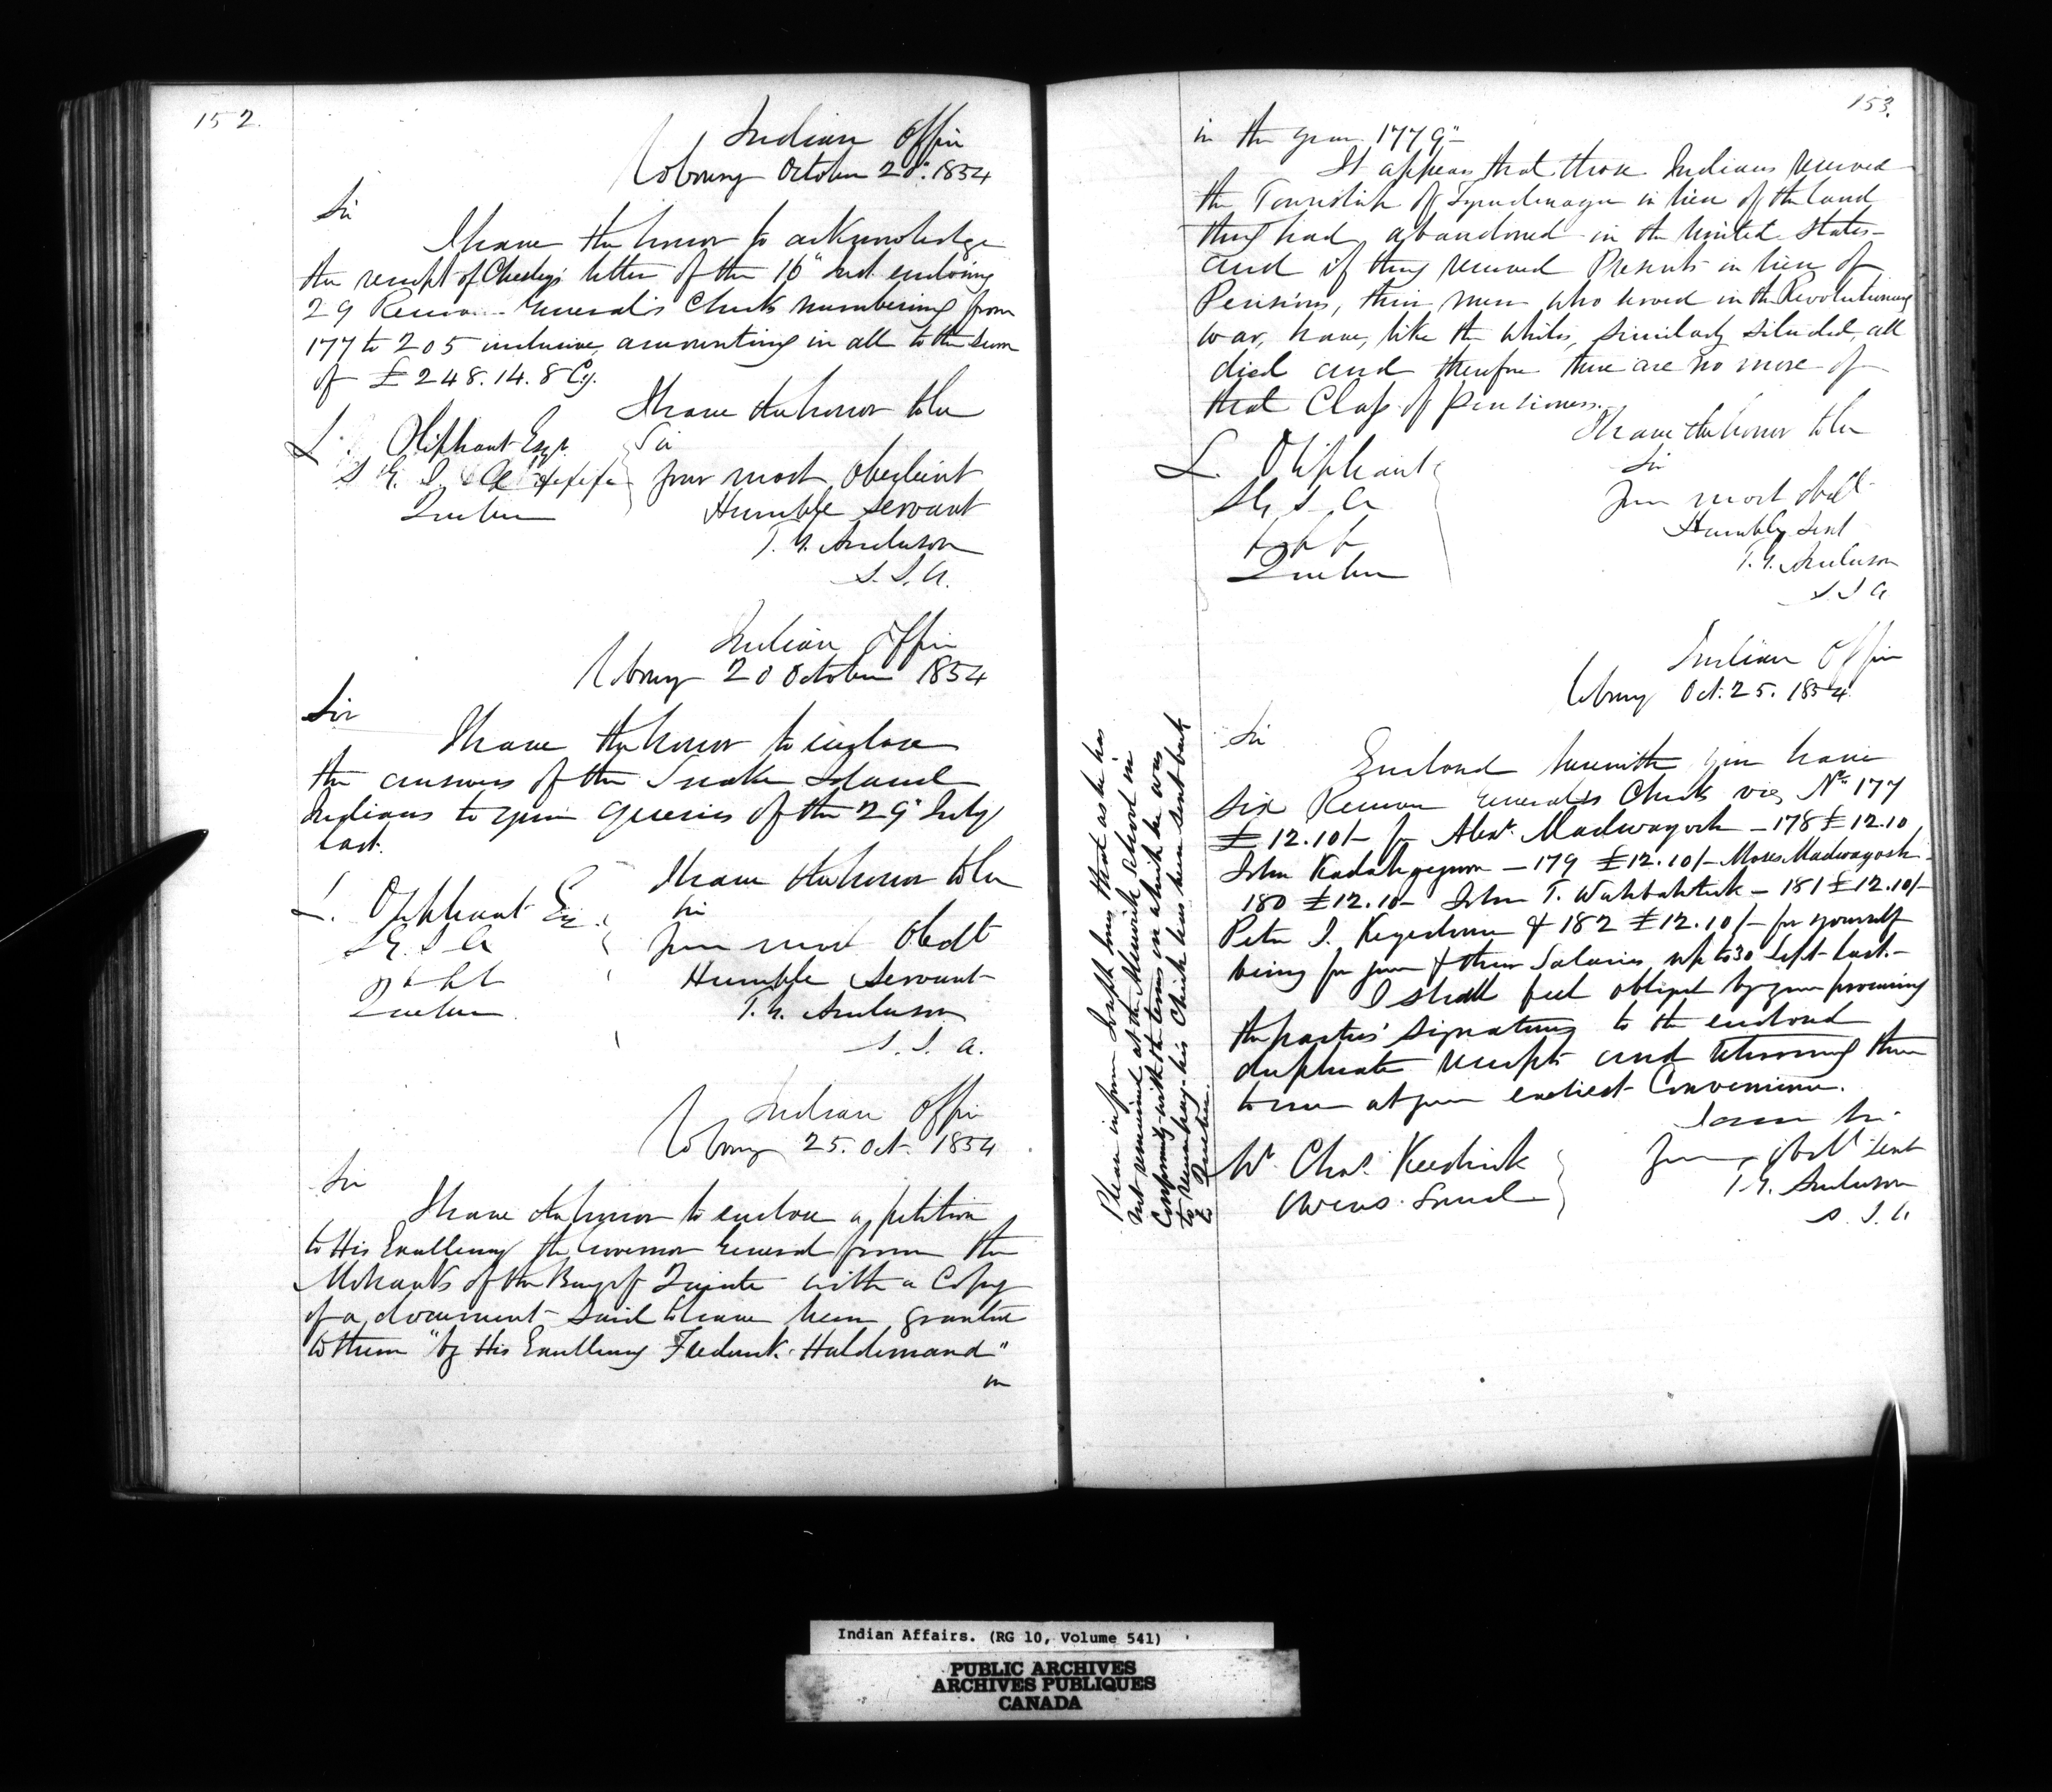 152.
Indian Office
Cobourg October 20". 1854
Sir
I have the honor to acknowledge
the receipt of Chesley's letter of the 16" Inst enclosing
29 Receiver General's Checks numbering from
177 to 205 inclusive, amounting in all to the sum
of £248.14.8 Cy.
I have the honor to be
L. Oliphant Esqr. Sir
S G. I. A &c &c &c your most Obedient
Quebec Humble Servant
T. G. Anderson
S. I. A.
Indian Office
Cobourg 20 October 1854
Sir
I have the honor to enclose
the answers of the Snake Island
Indians to your queries of the 29" July
last.
I have the honor to be
L. Oliphant Esq. Sir
S G. I A Your most Obedt
Humble Servant
Quebec T. G. Anderson
S. I. A.
Indian Office
Cobourg 25. Oct. 1854
Sir
I have the honor to enclose a petition
to His Excellency the Governor General from the
Mohawks of the Bay of Quinte with a Copy
of a document said to have been granted
to them "by His Excellency Frederick Haldimand"
in
153.
in the year 1779"
It appears that those Indians received
the Township of Tyendinaga in lieu of the land
they had abandoned in the United States
and if they received Presents in lieu of
Pensions, their men who served in the Revolutionary
war, have, like the whites, similarly situated, all
died and therefore there are no more of
that Class of pensioners.
I have the honor to be
L. Oliphant Sir
S G I A Your most obedt
&c &c &c Humble Servt
Quebec T. G. Anderson
S I A
Indian Office
Cobourg Oct. 25. 1854
Sir
Enclosed herewith you have
six Receiver General's Checks viz No 177
£12.10/- for Alexr. Madwayosh - 178 £12.10
John Kadahgegwon - 179 £12.10/- Moses Madwayosh
180 £12.10- John T. Wahbahtick - 181 £12.10/-
Peter J. Kegedonce & 182 £12.10/- for yourself
being for your & their Salaries up to 30 Sept. last.-
I shall feel obliged by your procuring
the parties' signatures to the enclosed
duplicate receipts and returning them
to me at your earliest Convenience.
I am Sir
Mr. Chas. Keeshick Your obedt Servt
Owens Sound T. G. Anderson
S. I. A
Please inform Joseph Jones that as he has
not remained at the Alnwick school in
Conformity with the terms on which he was
to receive pay his Check has been sent back
to Quebec.
Indian Affairs. (RG 10, Volume 541)
PUBLIC ARCHIVES
ARCHIVES PUBLIQUES
CANADA